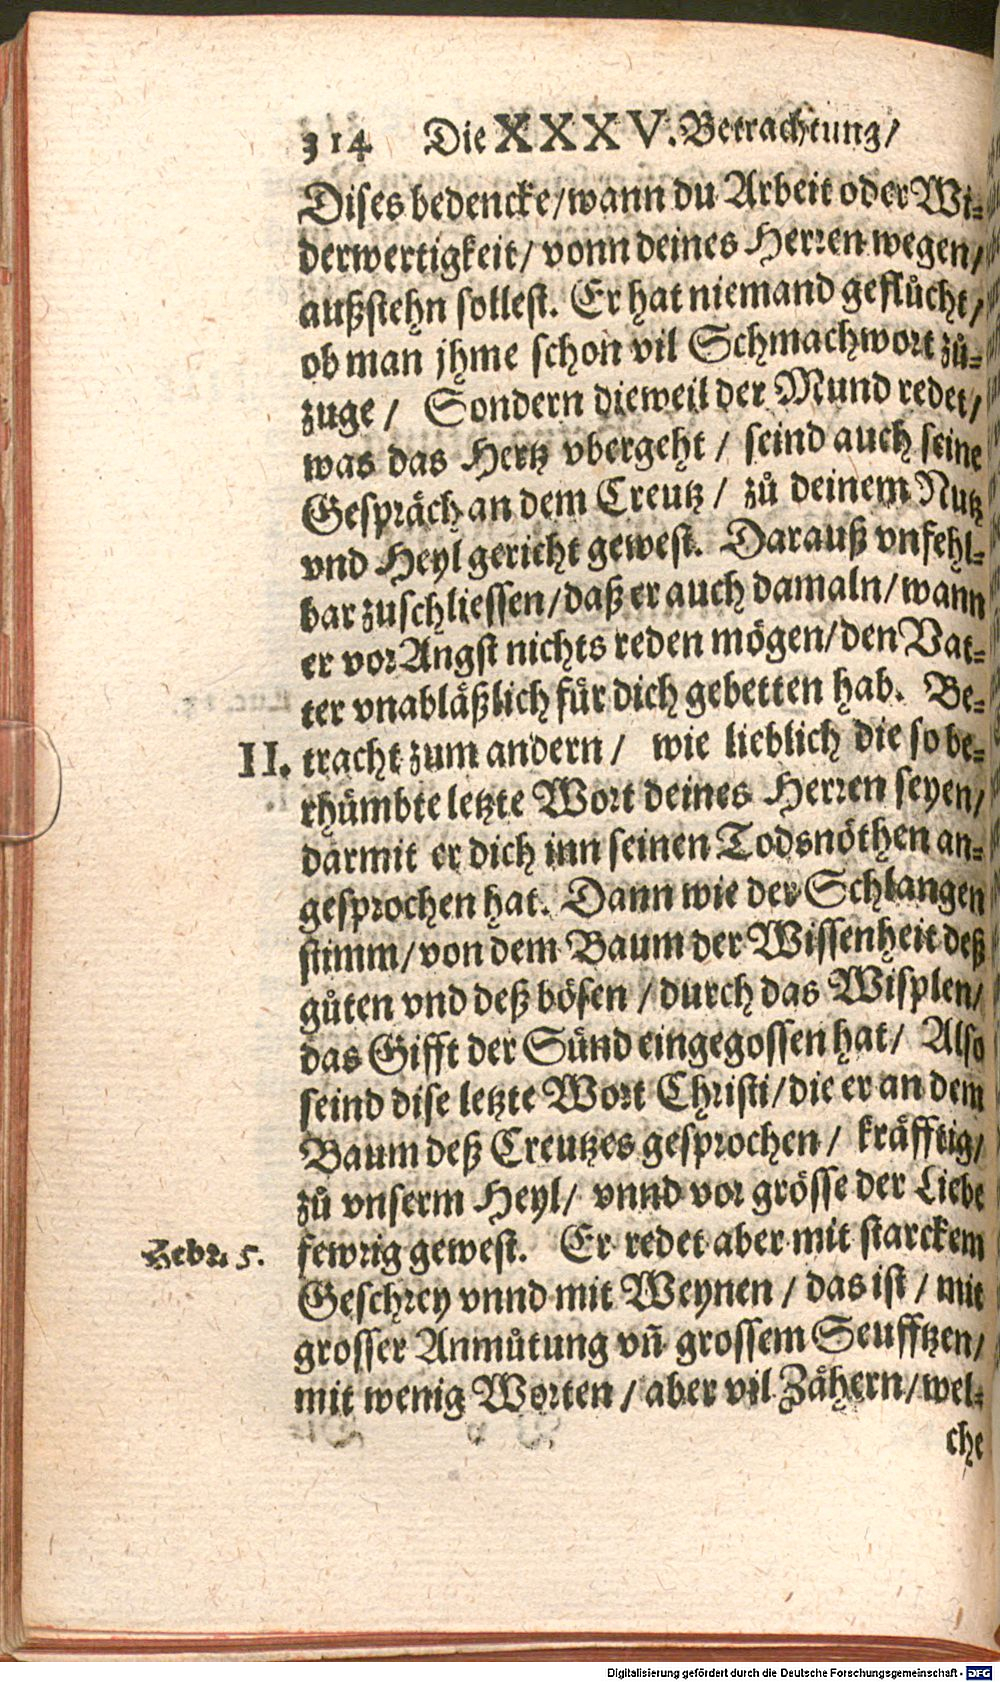 314 Die XXXV. Betrachtung/
Dises bedencke/wann du Arbeit oder Wi-
derwertigkeit/ vonn deines Herren wegen/
außstehn sollest. Er hat niemand geflůcht/
ob man jhme schon vil Schmachwort zů-
zuge / Sondern dieweil der Mund redet/
was das Hertz vbergeht / seind auch seine
Gespräch an dem Creutz / zů deinem Nutz
vnd Heyl gericht gewest. Darauß vnfehl-
bar zuschliessen/daß er auch damaln/wann
er vor Angst nichts reden mögen/den Vat-
ter vnabläßlich für dich gebetten hab. Be-
II. tracht zum andern / wie lieblich die so be-
rhümbte letzte Wort deines Herren seyen/
darmit er dich inn seinen Todsnöthen an-
gesprochen hat. Dann wie der Schlangen
stimm/von dem Baum der Wissenheit deß
gůten vnd deß bösen / durch das Wisplen/
das Gifft der Sünd eingegossen hat/ Also
seind dise letzte Wort Christi/die er an dem
Baum deß Creutzes gesprochen / kräfftig/
zů vnserm Heyl/ vnnd vor grösse der Liebe
Hebr. 5. fewrig gewest. Er redet aber mit starckem
Geschrey vnnd mit Weynen / das ist / mit
grosser Anmůtung vñ grossem Seufftzen/
mit wenig Worten / aber vil Zähern/wel-
che
Digitalisierung gefördert durch die Deutsche Forschungsgemeinschaft - DFG